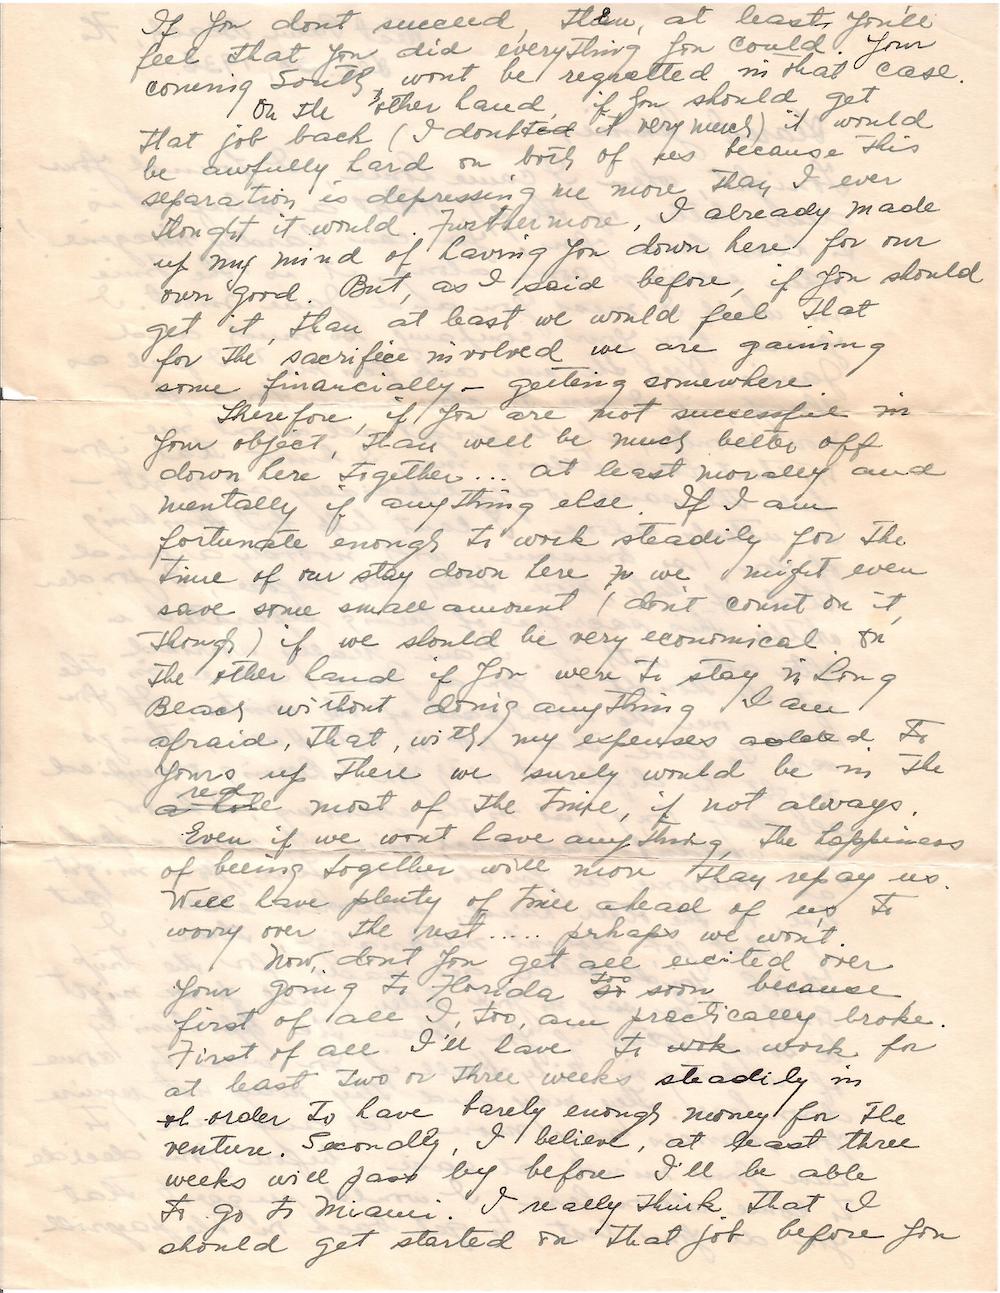 If you dont succeed, then, at least, you'll
feel that you did everything you could. Your
coming South, wont be regretted in that case.
On the other hand, if you should get
that job back (I doubted it very much) it would
be awfully hard on both of us because this
separation is depressing me more than I ever
thought it would. Furthermore, I already made
up my mind of having you down here for our
own good. But, as I said before, if you should
get it, than at least we would feel that
for the sacrifice involved we are gaining
some financially - getting somewhere
Therefore, if you are not successful in
your object, than well be much better off
down here together... at least morally and
mentally if anything else. If I am
fortunate enough to work steadily for the
time of our stay down here we might even
save some small amount (don't count on it,
though) if we should be very economical. On
the other hand if you were to stay in Long
Beach without doing anything I am
afraid, that, with my expenses added to
yours up there we surely would be in the
red most of the time, if not always.
Even if we wont have anything, the happiness
of being together will more than repay us.
Well have plenty of time ahead of us to
worry over the rest..... perhaps we won't.
Now, dont you get all excited over
your going to Florida too soon because,
first of all I, too, am practically broke.
First of all I'll have to wok work for
at least two or three weeks steadily in
order to have barely enough money for the
venture. Secondly, I believe, at least three
weeks will pass by before I'll be able
to go to Miami. I really think that I
should get started on that job before you